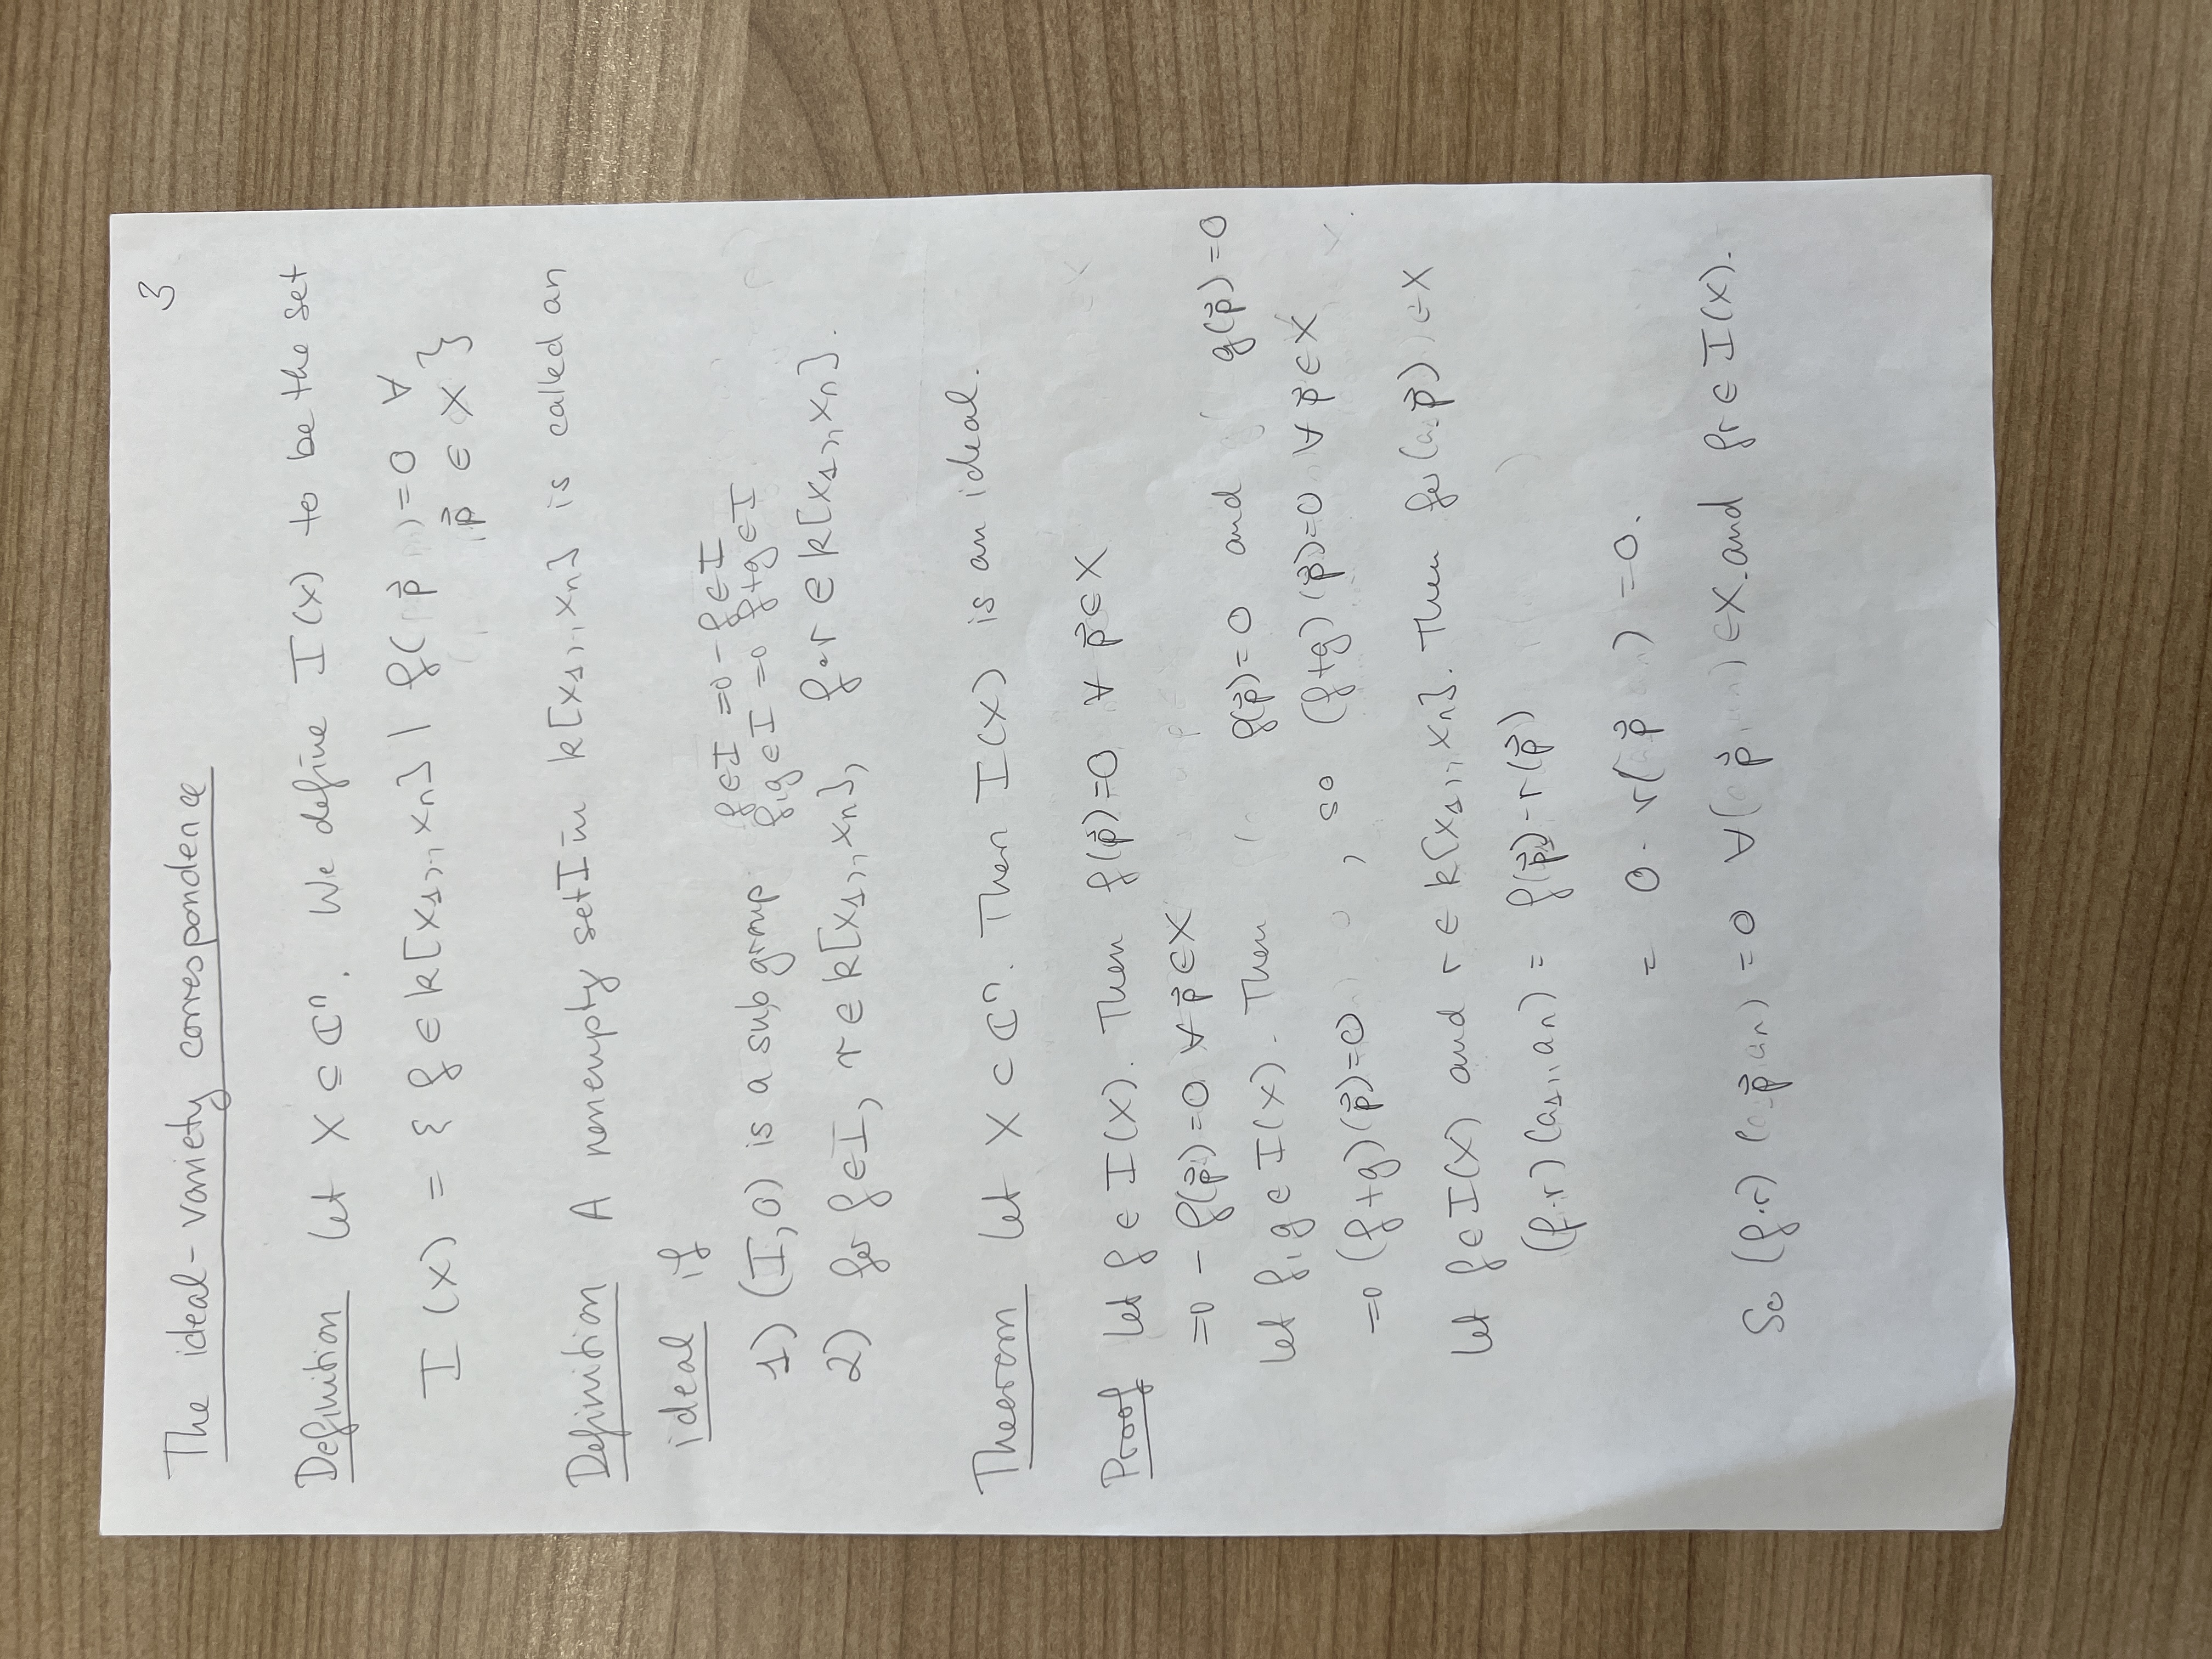 3
The ideal-variety correspondence
Definition Let X ⊆ ℂⁿ. We define I(X) to be the set
I(X) = { f ∈ k[x₁,.,xₙ] | f( p⃗ )=0 ∀
p⃗ ∈ X }
Definition A nonempty set I in k[x₁,.,xₙ] is called an
ideal if
f∈I ⇒ -f∈I
1) (I,0) is a subgroup f,g∈I ⇒ f+g∈I
2) for f∈I, r∈k[x₁,.,xₙ], f·r ∈ k[x₁,.,xₙ].
Theorem Let X ⊂ ℂⁿ. Then I(X) is an ideal.
Proof Let f ∈ I(X). Then f(p⃗)=0 ∀ p⃗∈X
⇒ -f(p⃗)=0 ∀ p⃗∈X
Let f,g∈I(X). Then f(p⃗)=0 and g(p⃗)=0
⇒ (f+g)(p⃗)=0 , so (f+g)(p⃗)=0 ∀ p⃗∈X
Let f∈I(X) and r∈k[x₁,.,xₙ]. Then for (p⃗) ∈X
(f·r)(a₁,.,aₙ) = f(p⃗)·r(p⃗)
= 0·r( p⃗ ) =0.
So (f·r) ( p⃗ aₙ) =0 ∀( p⃗ ) ∈X. and fr∈I(X).